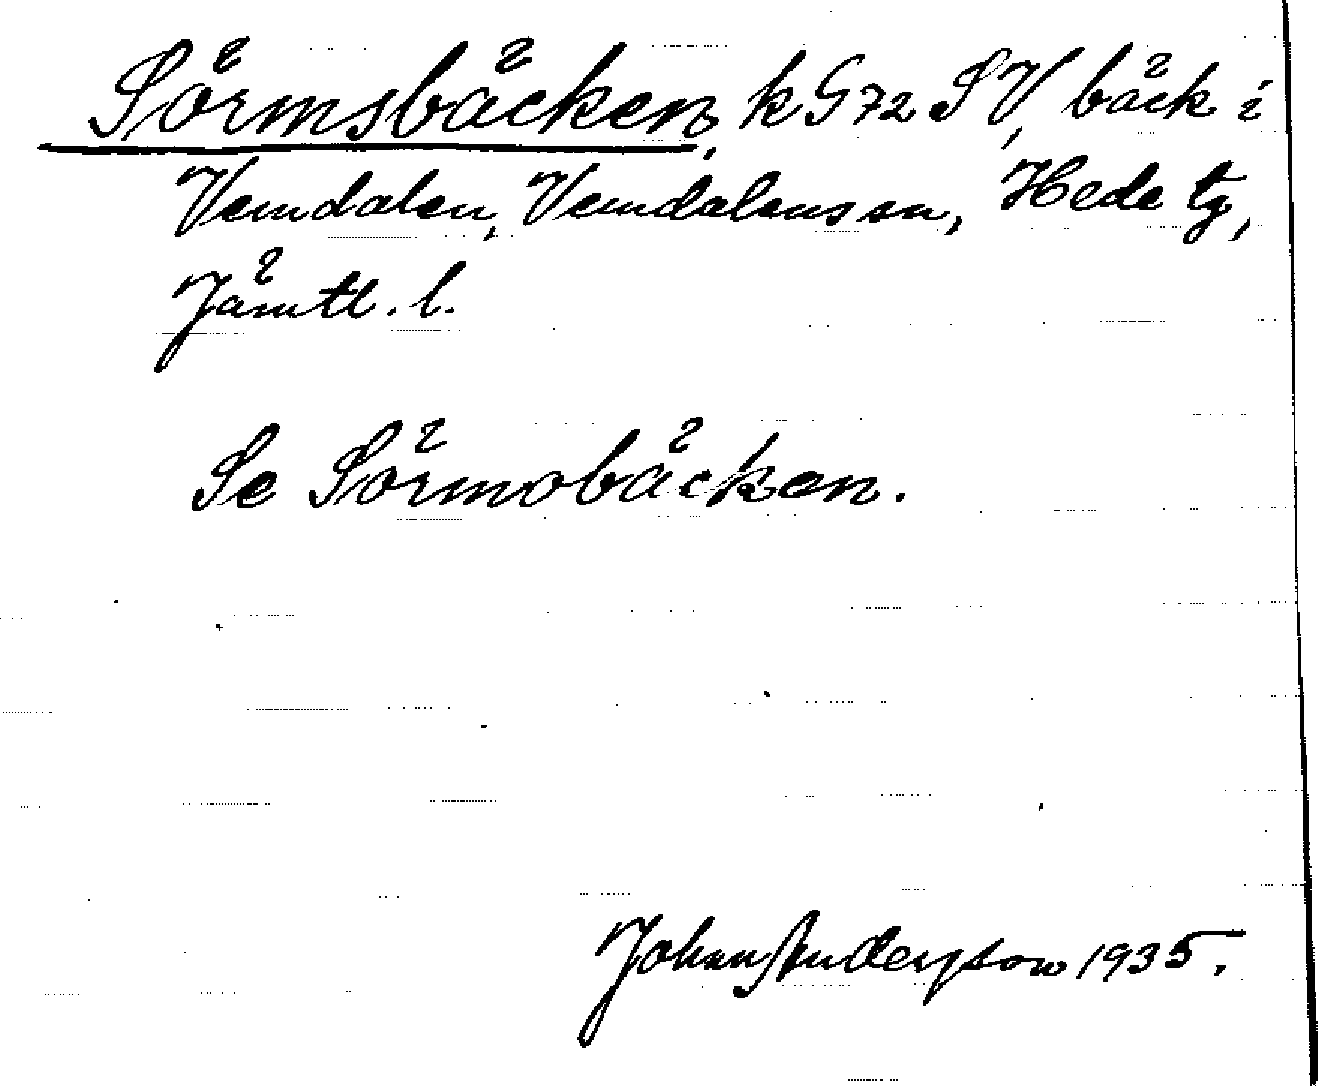 Sörmsbäcken, k G72 SV, bäck i
Vemdalen, Vemdalens sn, Hede tg,
Jämtl. l.
Se Sörmobäcken.
Johan Andersson 1935.